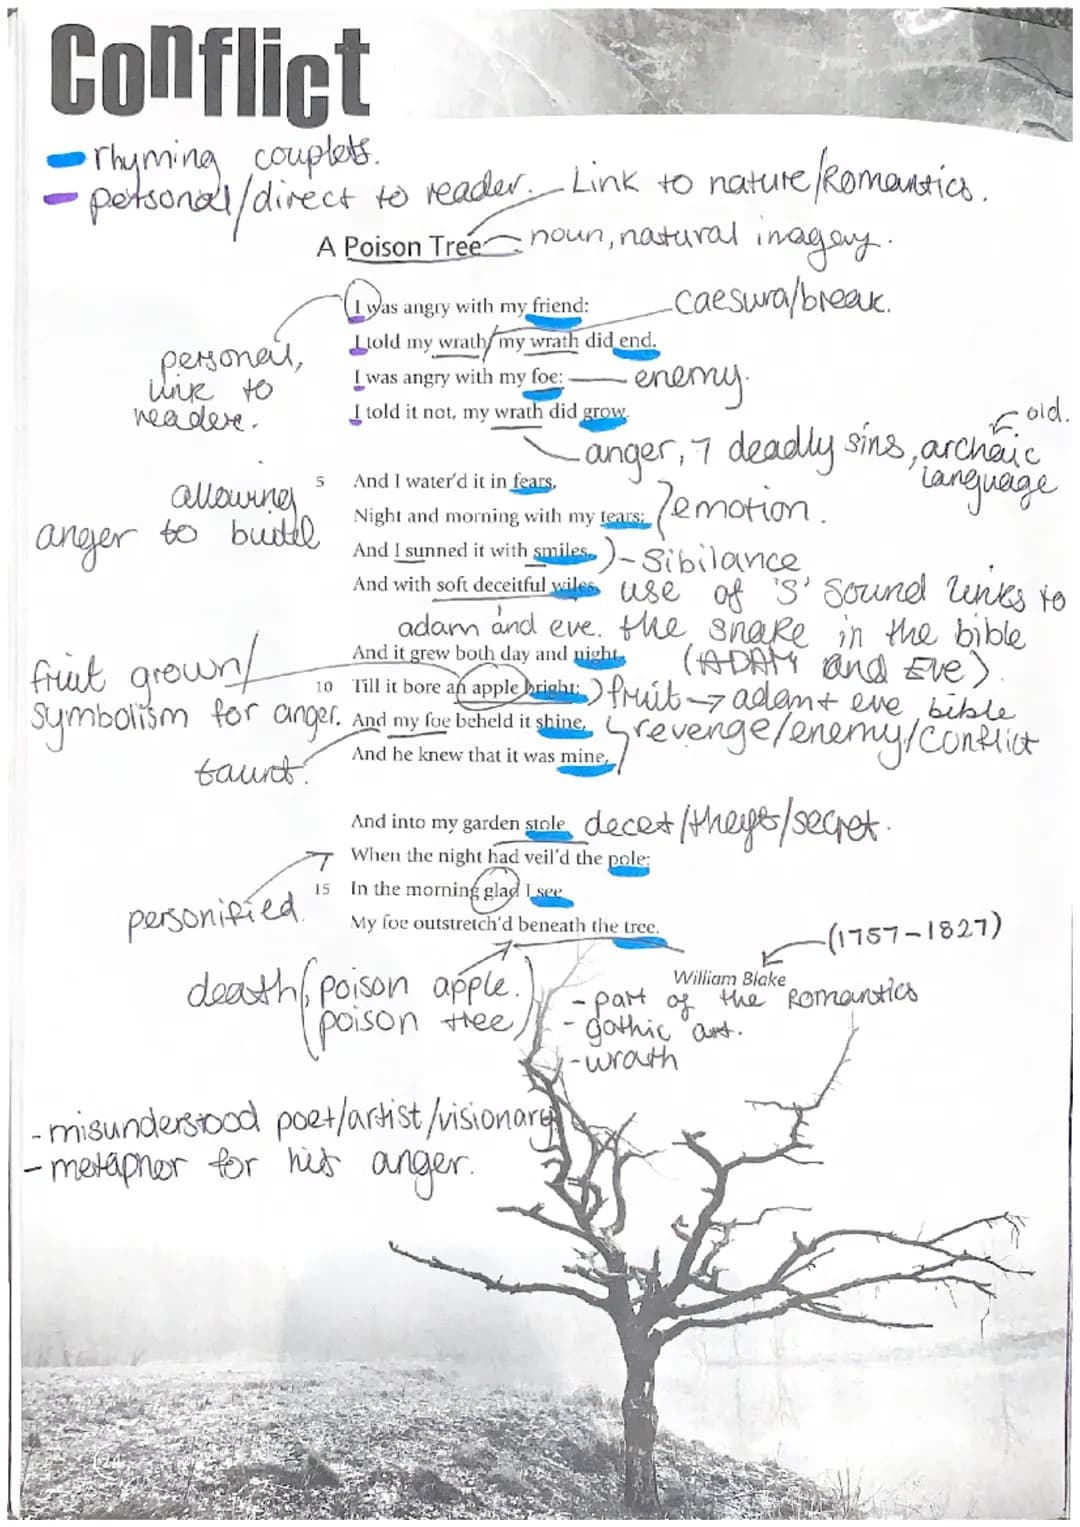 Conflict
- rhyming couplets.
- personal/direct to reader.
Link to nature/Romantics.
A Poison Tree
noun, natural imagery.
I was angry with my friend:
caesura/break.
I told my wrath/my wrath did end.
personal,
link to
reader.
I was angry with my foe:
enemy.
I told it not, my wrath did grow.
old.
anger, 7 deadly sins, archaic
language
allowing
anger to build
5 And I water'd it in fears,
Night and morning with my tears;
emotion.
And I sunned it with smiles,
- Sibilance
And with soft deceitful wiles.
use of 's' sound links to
the snake in the bible
(ADAM and EVE).
adam and eve.
And it grew both day and night,
fruit grown/
symbolism for anger.
10 Till it bore an apple bright;
fruit → adam + eve bible
And my foe beheld it shine,
revenge/enemy/conflict
taunt.
And he knew that it was mine,
And into my garden stole
decet/theft/secret.
When the night had veil'd the pole;
personified.
15 In the morning glad I see
My foe outstretch'd beneath the tree.
(1757-1827)
William Blake
death (poison apple.
poison tree)
- part of the Romantics
- gothic art.
- wrath
- misunderstood poet/artist/visionary
- metaphor for his anger.